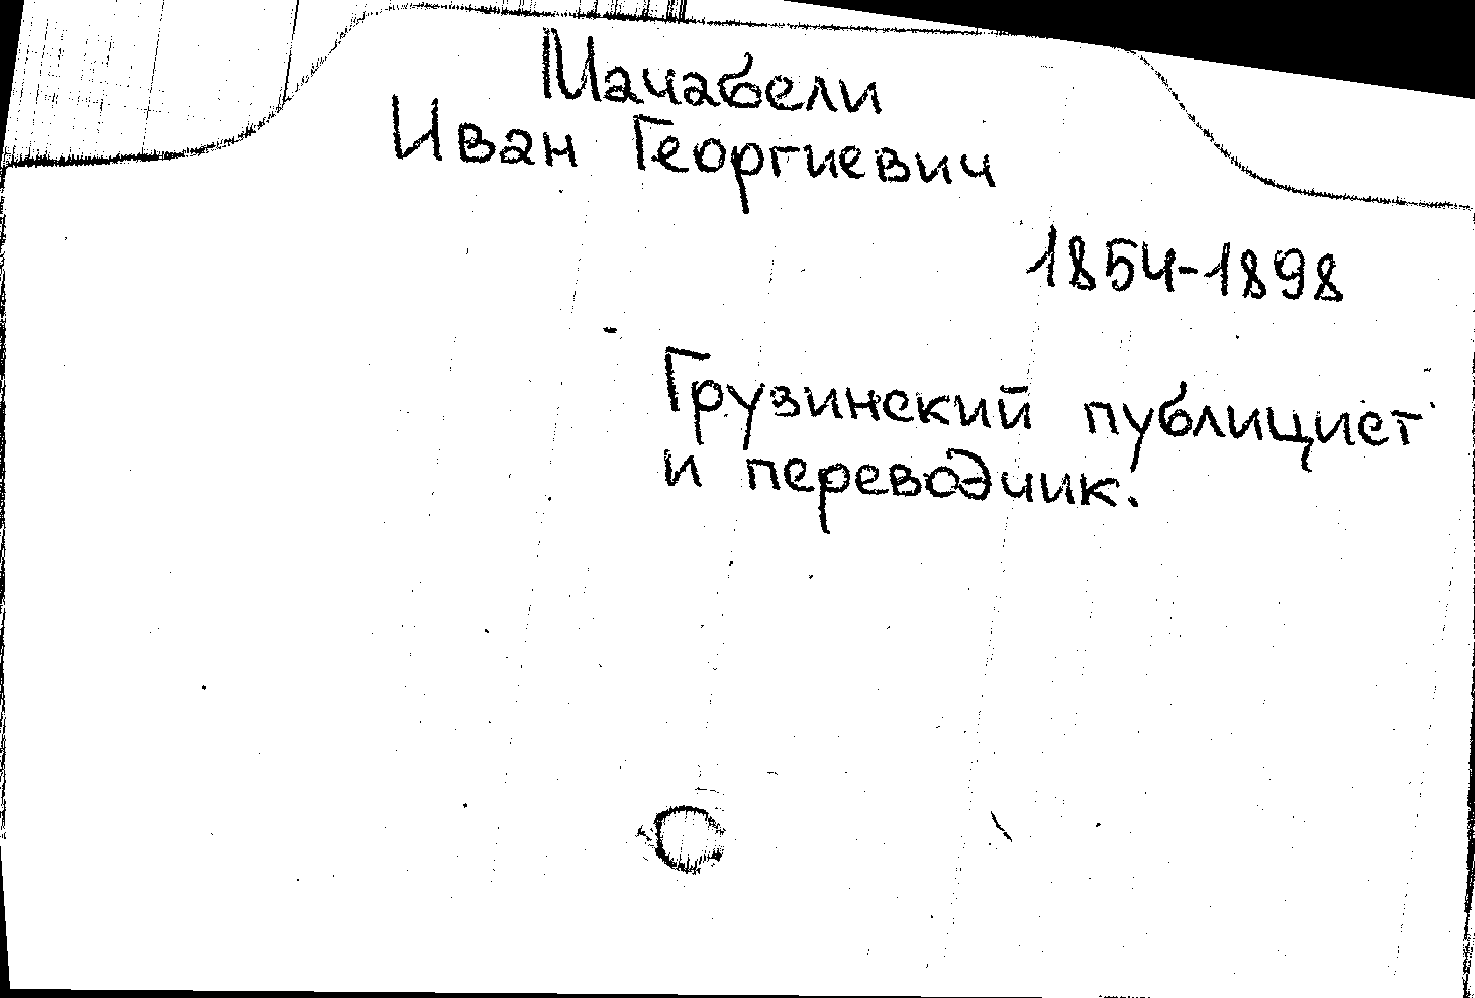 Мачабели
Иван Георгиевич
1854-1898
Грузинский публицист
и переводчик.